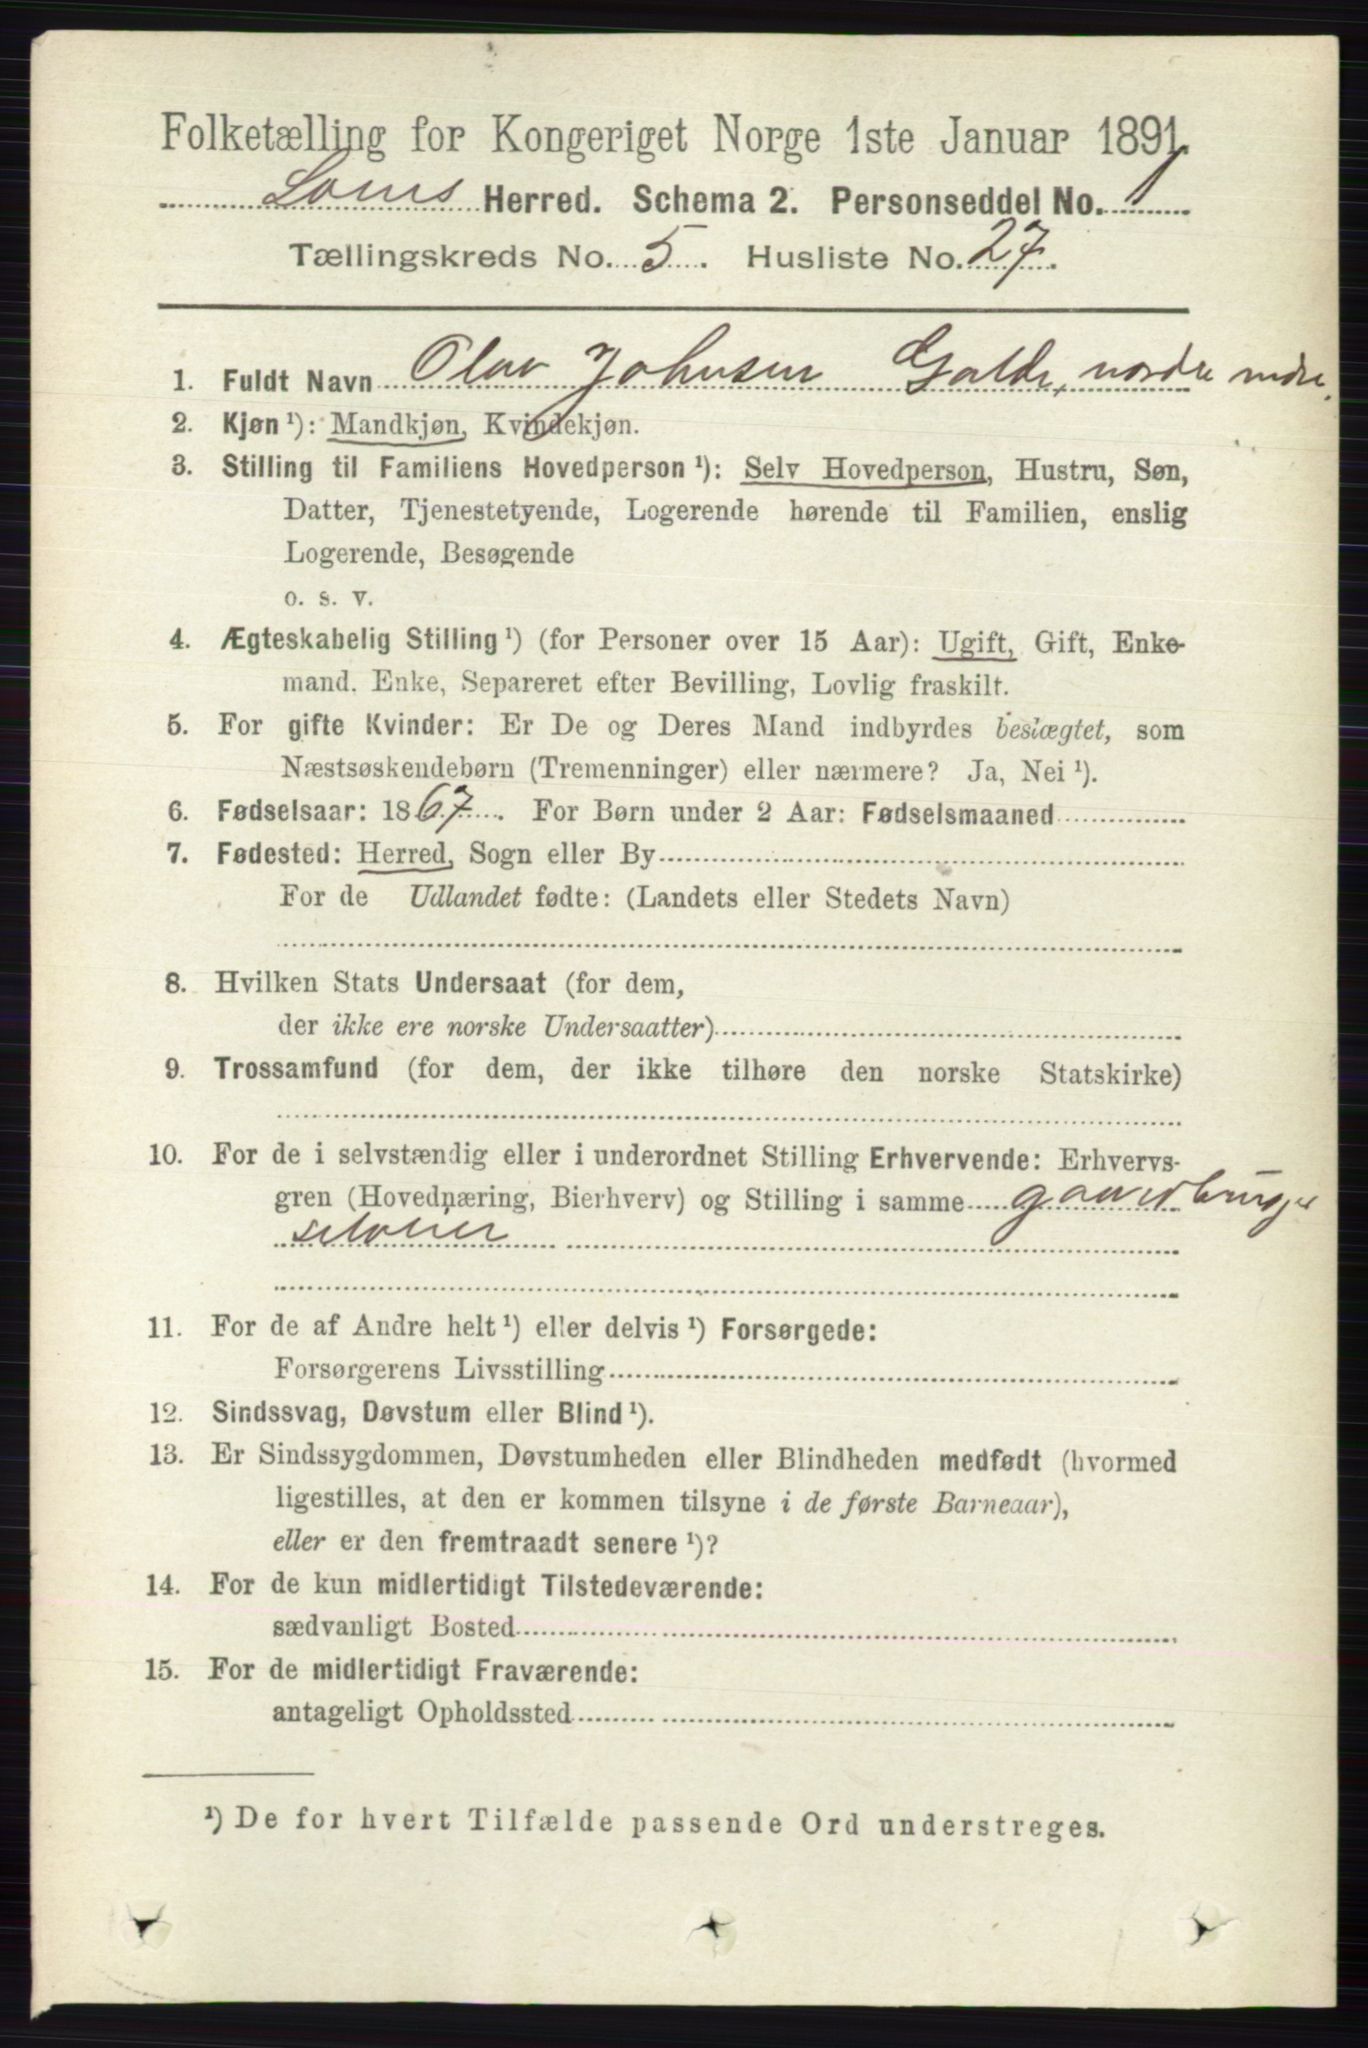 Folketælling for Kongeriget Norge 1ste Januar 1891.
Loms Herred. Schema 2. Personseddel No. 1
Tællingskreds No. 5. Husliste No. 27.
1. Fuldt Navn Olav Johnsen Galde, nordre indre.
2. Kjøn ¹): Mandkjøn, Kvindekjøn.
3. Stilling til Familiens Hovedperson ¹): Selv Hovedperson, Hustru, Søn,
Datter, Tjenestetyende, Logerende hørende til Familien, enslig
Logerende, Besøgende
o. s. v.
4. Ægteskabelig Stilling ¹) (for Personer over 15 Aar): Ugift, Gift, Enke-
mand, Enke, Separeret efter Bevilling, Lovlig fraskilt.
5. For gifte Kvinder: Er De og Deres Mand indbyrdes beslægtet, som
Næstsøskendebørn (Tremenninger) eller nærmere? Ja, Nei ¹).
6. Fødselsaar: 1867. For Børn under 2 Aar: Fødselsmaaned
7. Fødested: Herred, Sogn eller By
For de Udlandet fødte: (Landets eller Stedets Navn)
8. Hvilken Stats Undersaat (for dem,
der ikke ere norske Undersaatter)
9. Trossamfund (for dem, der ikke tilhøre den norske Statskirke)
10. For de i selvstændig eller i underordnet Stilling Erhvervende: Erhvervs-
gren (Hovednæring, Bierhverv) og Stilling i samme gaardbruger
seloier
11. For de af Andre helt ¹) eller delvis ¹) Forsørgede:
Forsørgerens Livsstilling
12. Sindssvag, Døvstum eller Blind ¹).
13. Er Sindssygdommen, Døvstumheden eller Blindheden medfødt (hvormed
ligestilles, at den er kommen tilsyne i de første Barneaar),
eller er den fremtraadt senere ¹)?
14. For de kun midlertidigt Tilstedeværende:
sædvanligt Bosted
15. For de midlertidigt Fraværende:
antageligt Opholdssted
¹) De for hvert Tilfælde passende Ord understreges.